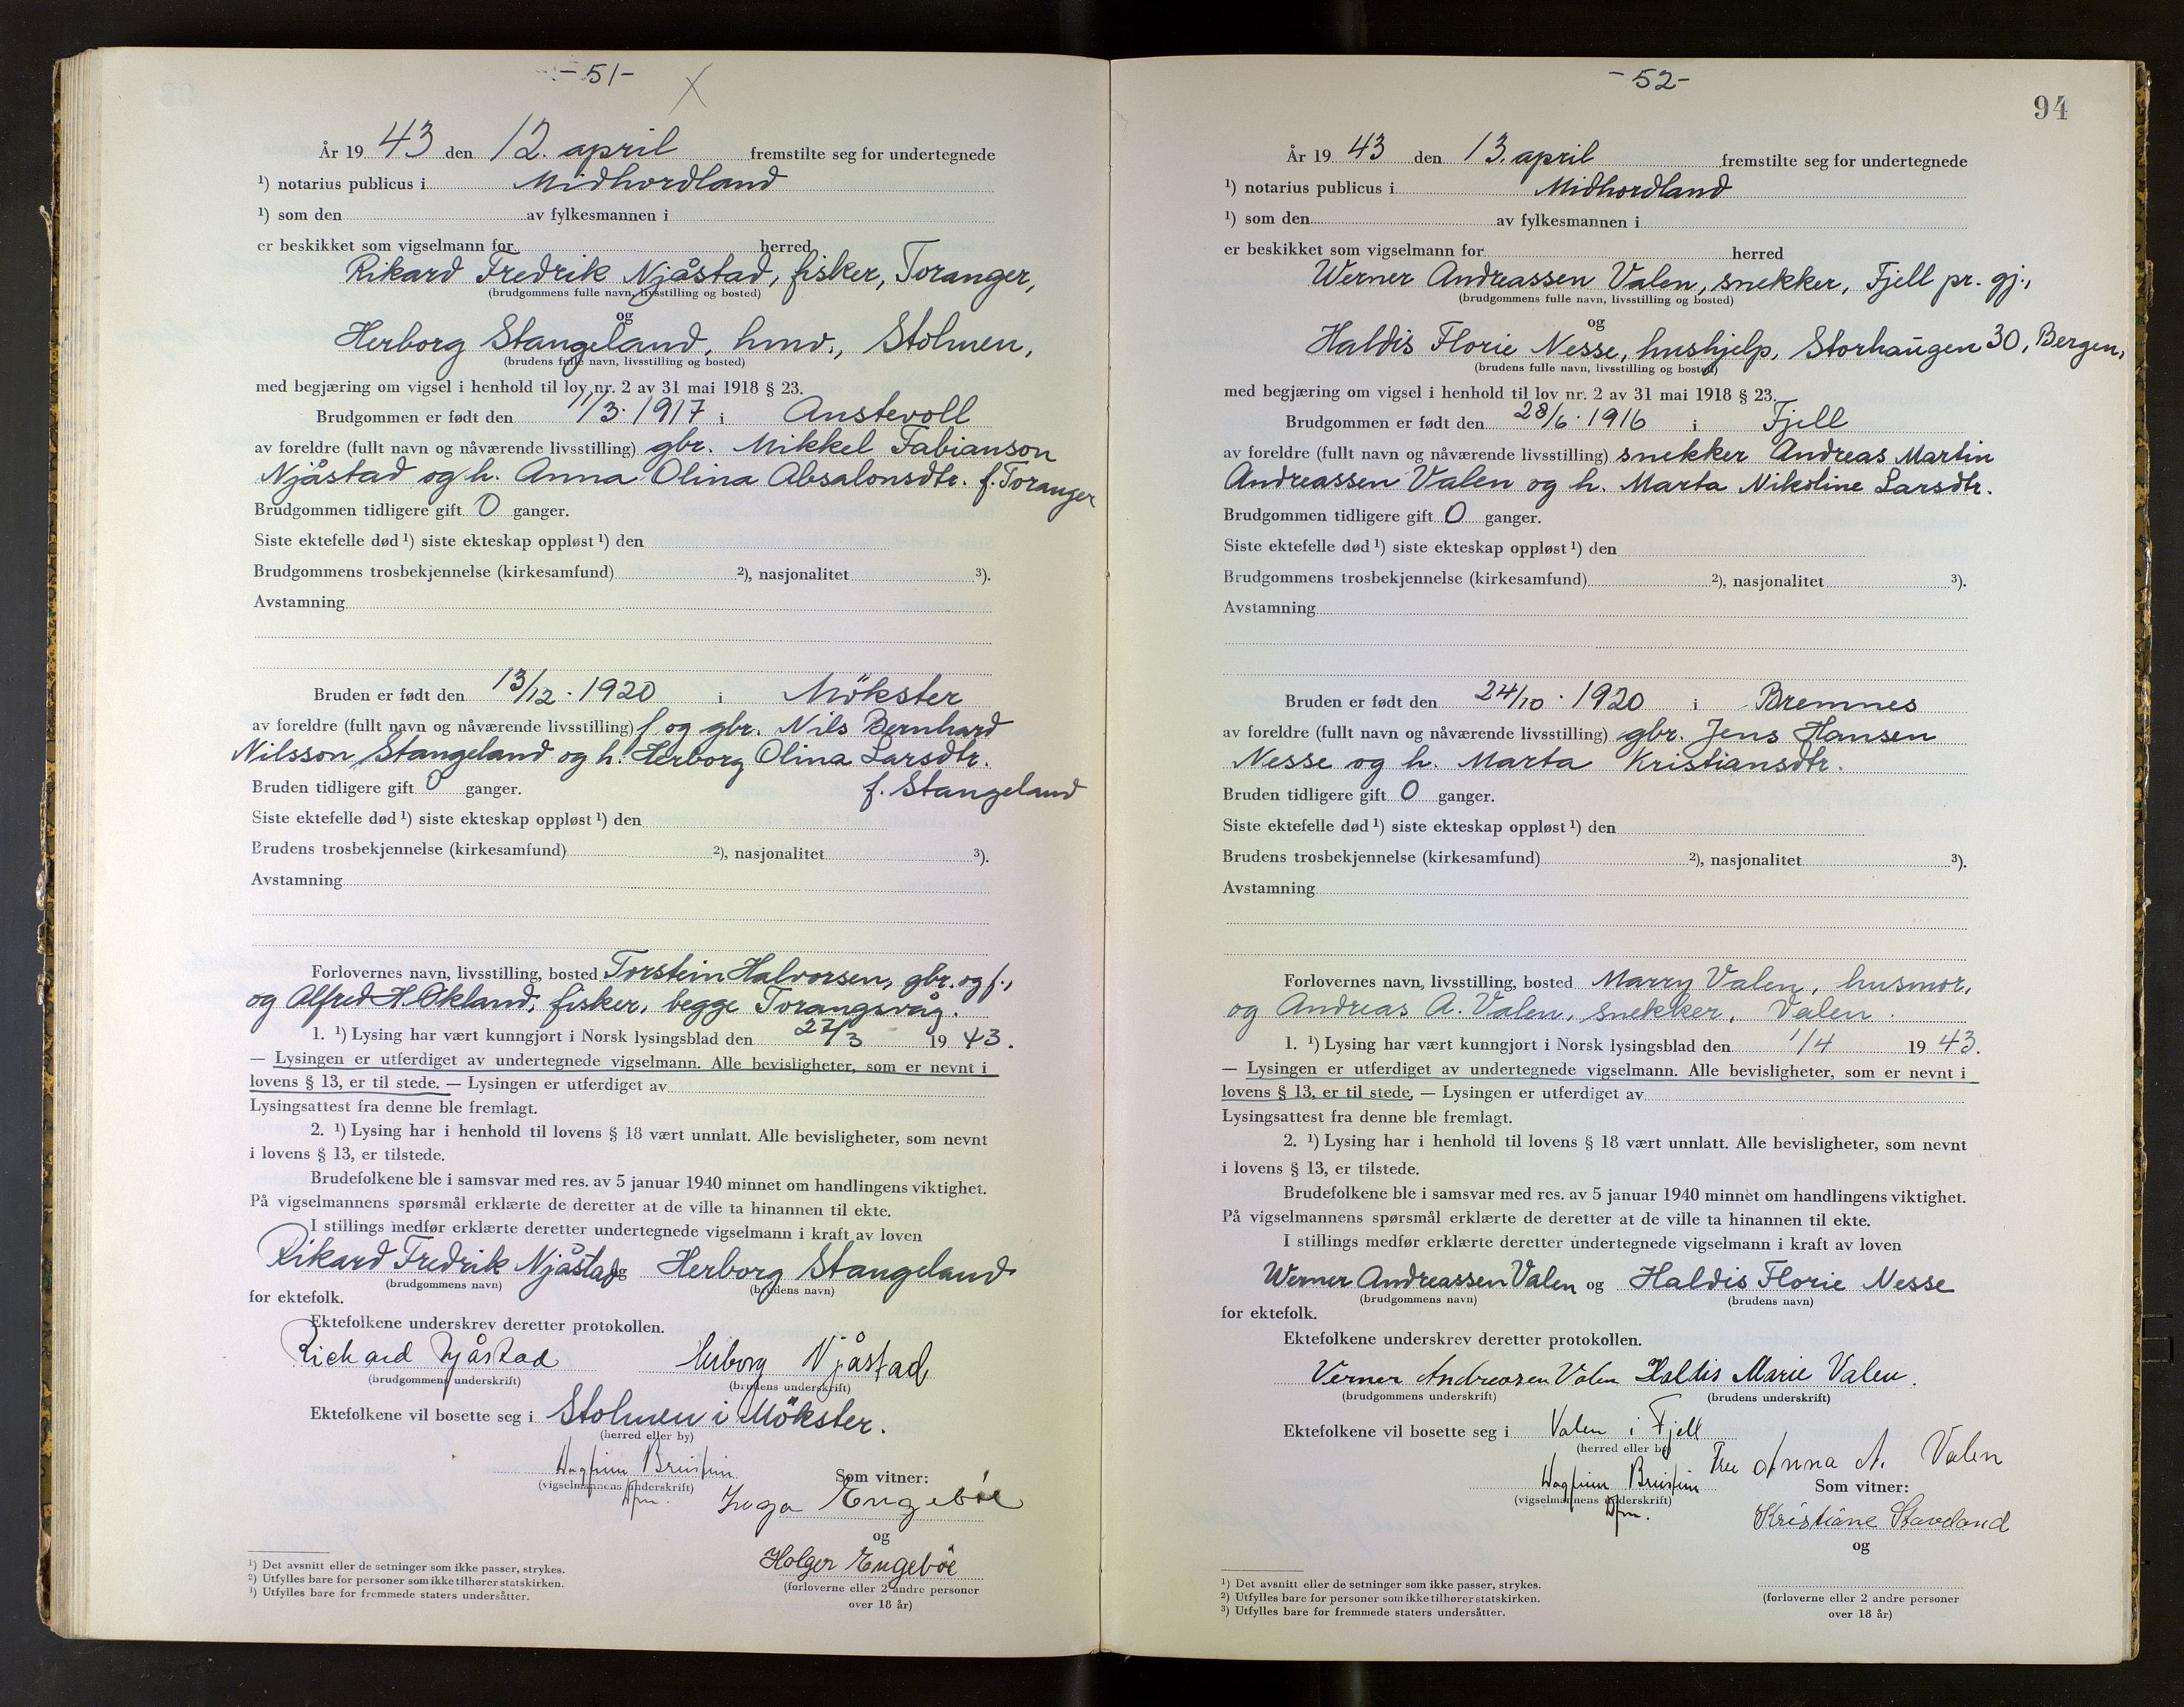 -51-
År 19 43 den 12. april fremstilte seg for undertegnede
¹) notarius publicus i Midhordland
¹) som den av fylkesmannen i
er beskikket som vigselmann for herred
Rikard Fredrik Njåstad, fisker, Toranger,
(brudgommens fulle navn, livsstilling og bosted)
og
Herborg Stangeland, hmv., Stolmen,
(brudens fulle navn, livsstilling og bosted)
med begjæring om vigsel i henhold til lov nr. 2 av 31 mai 1918 § 23.
Brudgommen er født den 11/3. 1917 i Austevoll
av foreldre (fullt navn og nåværende livsstilling) gbr. Mikkel Fabianson
Njåstad og h. Anna Olina Absalonsdtr. f. Toranger
Brudgommen tidligere gift 0 ganger.
Siste ektefelle død ¹) siste ekteskap oppløst ¹) den
Brudgommens trosbekjennelse (kirkesamfund) ²), nasjonalitet ³).
Avstamning
Bruden er født den 13/12. 1920 i Mökster
av foreldre (fullt navn og nåværende livsstilling) f og gbr. Nils Bernhard
Nilsson Stangeland og h. Herborg Olina Larsdtr.
f. Stangeland
Bruden tidligere gift 0 ganger.
Siste ektefelle død ¹) siste ekteskap oppløst ¹) den
Brudens trosbekjennelse (kirkesamfund) ²), nasjonalitet ³).
Avstamning
Forlovernes navn, livsstilling, bosted Torstein Halvorsen, gbr. og f.,
og Alfred H. Økland, fisker, begge Torangsvåg.
1. ¹) Lysing har vært kunngjort i Norsk lysingsblad den 27/3 19 43.
— Lysingen er utferdiget av undertegnede vigselmann. Alle bevisligheter, som er nevnt i
lovens § 13, er til stede. — Lysingen er utferdiget av
Lysingsattest fra denne ble fremlagt.
2. ¹) Lysing har i henhold til lovens § 18 vært unnlatt. Alle bevisligheter, som nevnt
i lovens § 13, er tilstede.
Brudefolkene ble i samsvar med res. av 5 januar 1940 minnet om handlingens viktighet.
På vigselmannens spørsmål erklærte de deretter at de ville ta hinannen til ekte.
I stillings medfør erklærte deretter undertegnede vigselmann i kraft av loven
Rikard Fredrik Njåstad og Herborg Stangeland
(brudgommens navn) (brudens navn)
for ektefolk.
Ektefolkene underskrev deretter protokollen.
Richard Njåstad Herborg Njåstad
(brudgommens underskrift) (brudens underskrift)
Ektefolkene vil bosette seg i Stolmen i Mökster.
(herred eller by)
Dagfinn Breistein
(vigselmannens underskrift)
Dfm.
Som vitner:
Inga Engeböe
og
Holger Engeböe
(forloverne eller 2 andre personer
over 18 år)
¹) Det avsnitt eller de setninger som ikke passer, strykes.
²) Utfylles bare for personer som ikke tilhører statskirken.
³) Utfylles bare for fremmede staters undersåtter.
-52-
94
År 19 43 den 13. april fremstilte seg for undertegnede
¹) notarius publicus i Midhordland
¹) som den av fylkesmannen i
er beskikket som vigselmann for herred
Werner Andreassen Valen, snekker, Fjell pr. gj.,
(brudgommens fulle navn, livsstilling og bosted)
og
Haldis Florie Nesse, hushjelp, Storhaugen 30, Bergen,
(brudens fulle navn, livsstilling og bosted)
med begjæring om vigsel i henhold til lov nr. 2 av 31 mai 1918 § 23.
Brudgommen er født den 28/6. 1916 i Fjell
av foreldre (fullt navn og nåværende livsstilling) snekker Andreas Martin
Andreassen Valen og h. Marta Nikoline Larsdtr.
Brudgommen tidligere gift 0 ganger.
Siste ektefelle død ¹) siste ekteskap oppløst ¹) den
Brudgommens trosbekjennelse (kirkesamfund) ²), nasjonalitet ³).
Avstamning
Bruden er født den 24/10. 1920 i Bremnes
av foreldre (fullt navn og nåværende livsstilling) gbr. Jens Hansen
Nesse og h. Marta Kristiansdtr.
Bruden tidligere gift 0 ganger.
Siste ektefelle død ¹) siste ekteskap oppløst ¹) den
Brudens trosbekjennelse (kirkesamfund) ²), nasjonalitet ³).
Avstamning
Forlovernes navn, livsstilling, bosted Marry Valen, husmor,
og Andreas A. Valen, snekker, Valen.
1. ¹) Lysing har vært kunngjort i Norsk lysingsblad den 1/4 19 43.
— Lysingen er utferdiget av undertegnede vigselmann. Alle bevisligheter, som er nevnt i
lovens § 13, er til stede, — Lysingen er utferdiget av
Lysingsattest fra denne ble fremlagt.
2. ¹) Lysing har i henhold til lovens § 18 vært unnlatt. Alle bevisligheter, som nevnt
i lovens § 13, er tilstede.
Brudefolkene ble i samsvar med res. av 5 januar 1940 minnet om handlingens viktighet.
På vigselmannens spørsmål erklærte de deretter at de ville ta hinannen til ekte.
I stillings medfør erklærte deretter undertegnede vigselmann i kraft av loven
Werner Andreassen Valen og Haldis Florie Nesse
(brudgommens navn) (brudens navn)
for ektefolk.
Ektefolkene underskrev deretter protokollen.
Verner Andreasen Valen Haldis Marie Valen.
(brudgommens underskrift) (brudens underskrift)
Ektefolkene vil bosette seg i Valen i Fjell
(herred eller by)
Fru Anna A. Valen
Dagfinn Breistein
(vigselmannens underskrift)
Dfm.
Som vitner:
Kristiane Staveland
og
(forloverne eller 2 andre personer
over 18 år)
¹) Det avsnitt eller de setninger som ikke passer, strykes.
²) Utfylles bare for personer som ikke tilhører statskirken.
³) Utfylles bare for fremmede staters undersåtter.